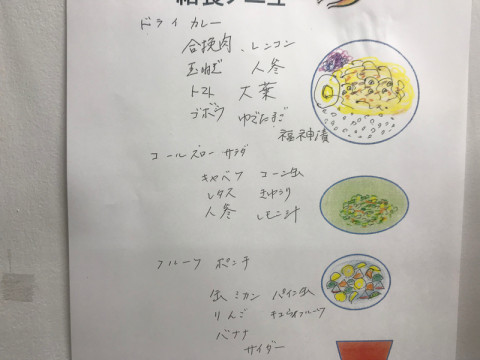 給食メニュー
ドライカレー
合挽肉、レンコン
玉ねぎ 人参
トマト 大葉
ゴボウ ゆでたまご
福神漬
コールスローサラダ
キャベツ コーン缶
レタス きゅうり
人参 レモン汁
フルーツ ポンチ
缶ミカン パイン缶
りんご キュウイフルーツ
バナナ
サイダー